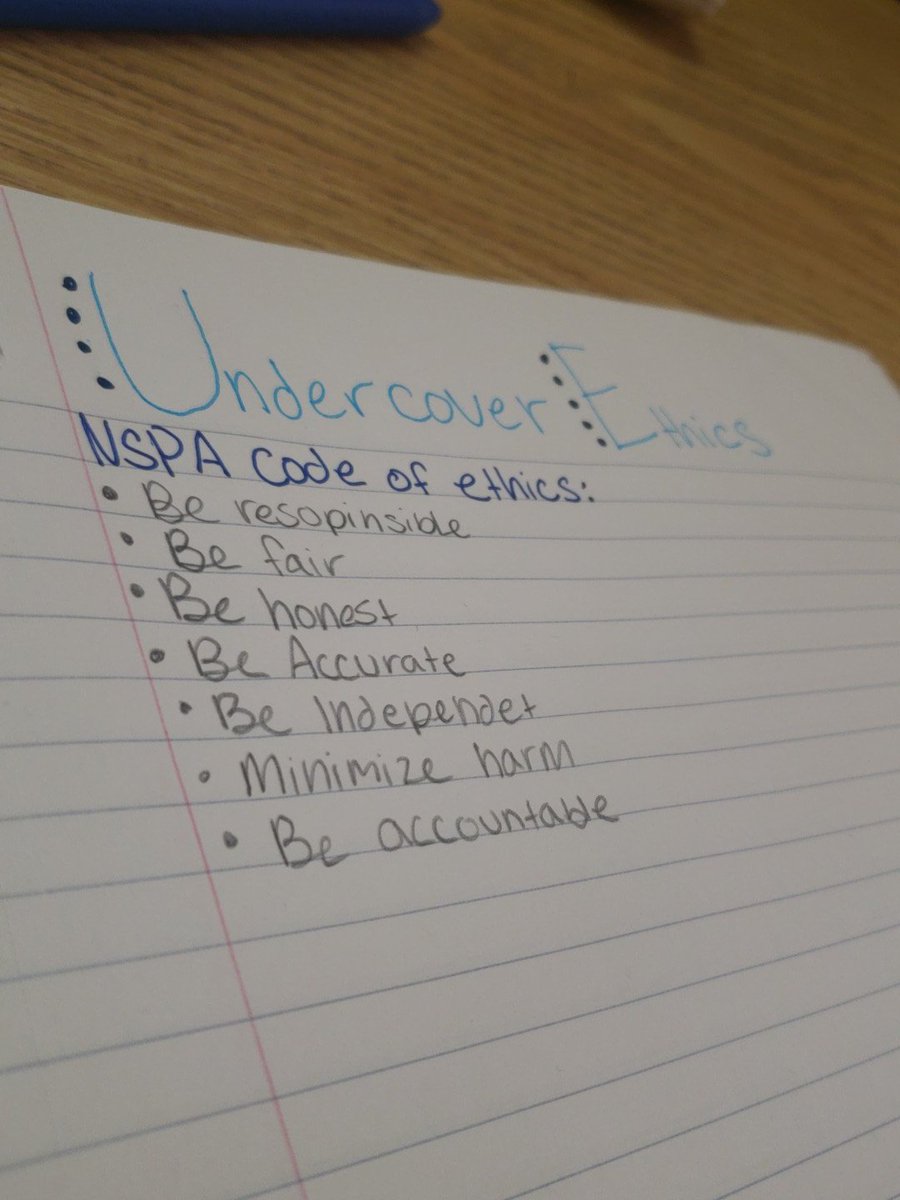 Undercover Ethics
NSPA code of ethics:
• Be resopinsible
• Be fair
• Be honest
• Be Accurate
• Be Independet
• Minimize harm
• Be accountable